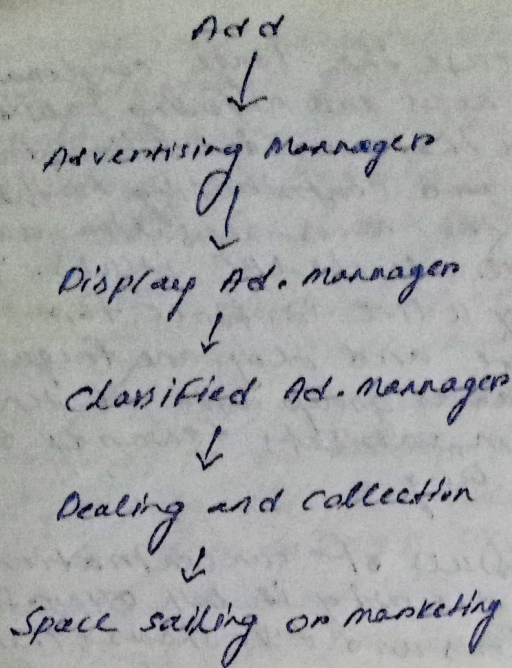 Add
Advertising Manager
Display Ad. manager
Classified Ad. manager
Dealing and collection
Space sailing or marketing